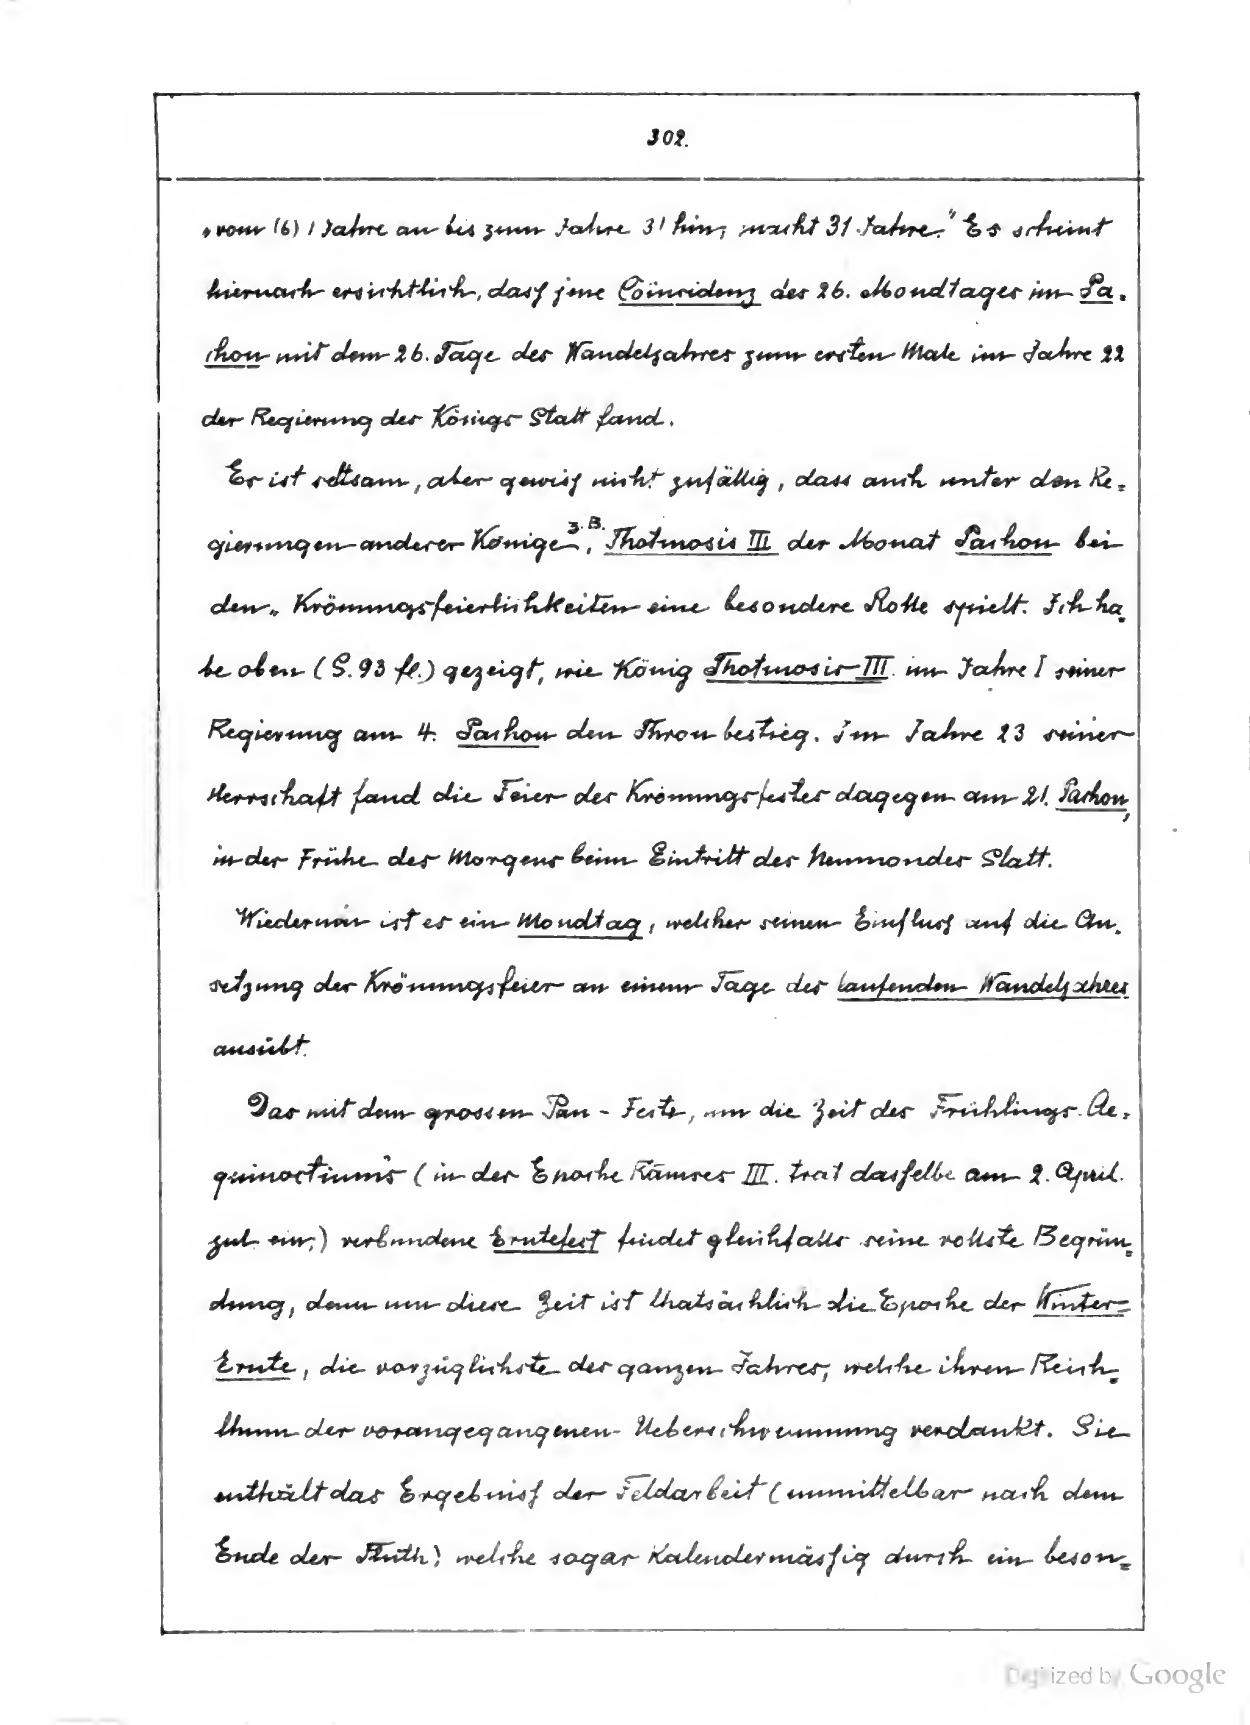 302.
„vom (6) 1 Jahre an bis zum Jahre 31 hin, macht 31 Jahre." Es scheint
hiernach ersichtlich, dasſ jene Coïncidenz des 26. Mondtages im Pa-
chon mit dem 26. Tage des Wandeljahres zum ersten Male im Jahre 22
der Regierung des Königs Statt fand.
Es ist seltsam, aber gewiſs nicht zufällig, dass auch unter den Re-
gierungen anderer Könige, z. B. Thotmosis III der Monat Pachon bei
den Krönungsfeierlichkeiten eine besondere Rolle spielt. Ich ha-
be oben (S. 93 fl.) gezeigt, wie König Thotmosis III. im Jahre I seiner
Regierung am 4. Pachon den Thron bestieg. Im Jahre 23 seiner
Herrschaft fand die Feier des Krönungsfestes dagegen am 21. Pachon,
in der Frühe des Morgens beim Eintritt des Neumondes Statt.
Wiederum ist es ein Mondtag, welcher seinen Einfluſs auf die An-
setzung der Krönungsfeier an einem Tage des laufenden Wandeljahres
ausübt.
Das mit dem grossen Pan-Feste, um die Zeit des Frühlings-Ae-
quinoctiums (in der Epoche Ramses III. trat dasſelbe am 2. April
jul. ein,) verbundene Erntefest findet gleichfalls seine vollste Begrün-
dung, denn um diese Zeit ist thatsächlich die Epoche der Winter-
Ernte, die vorzüglichste des ganzen Jahres, welche ihren Reich-
thum der vorangegangenen Ueberschwemmung verdankt. Sie
enthält das Ergebniſs der Feldarbeit (unmittelbar nach dem
Ende der Fluth) welche sogar kalendermäsſig durch ein beson-
Digitized by Google